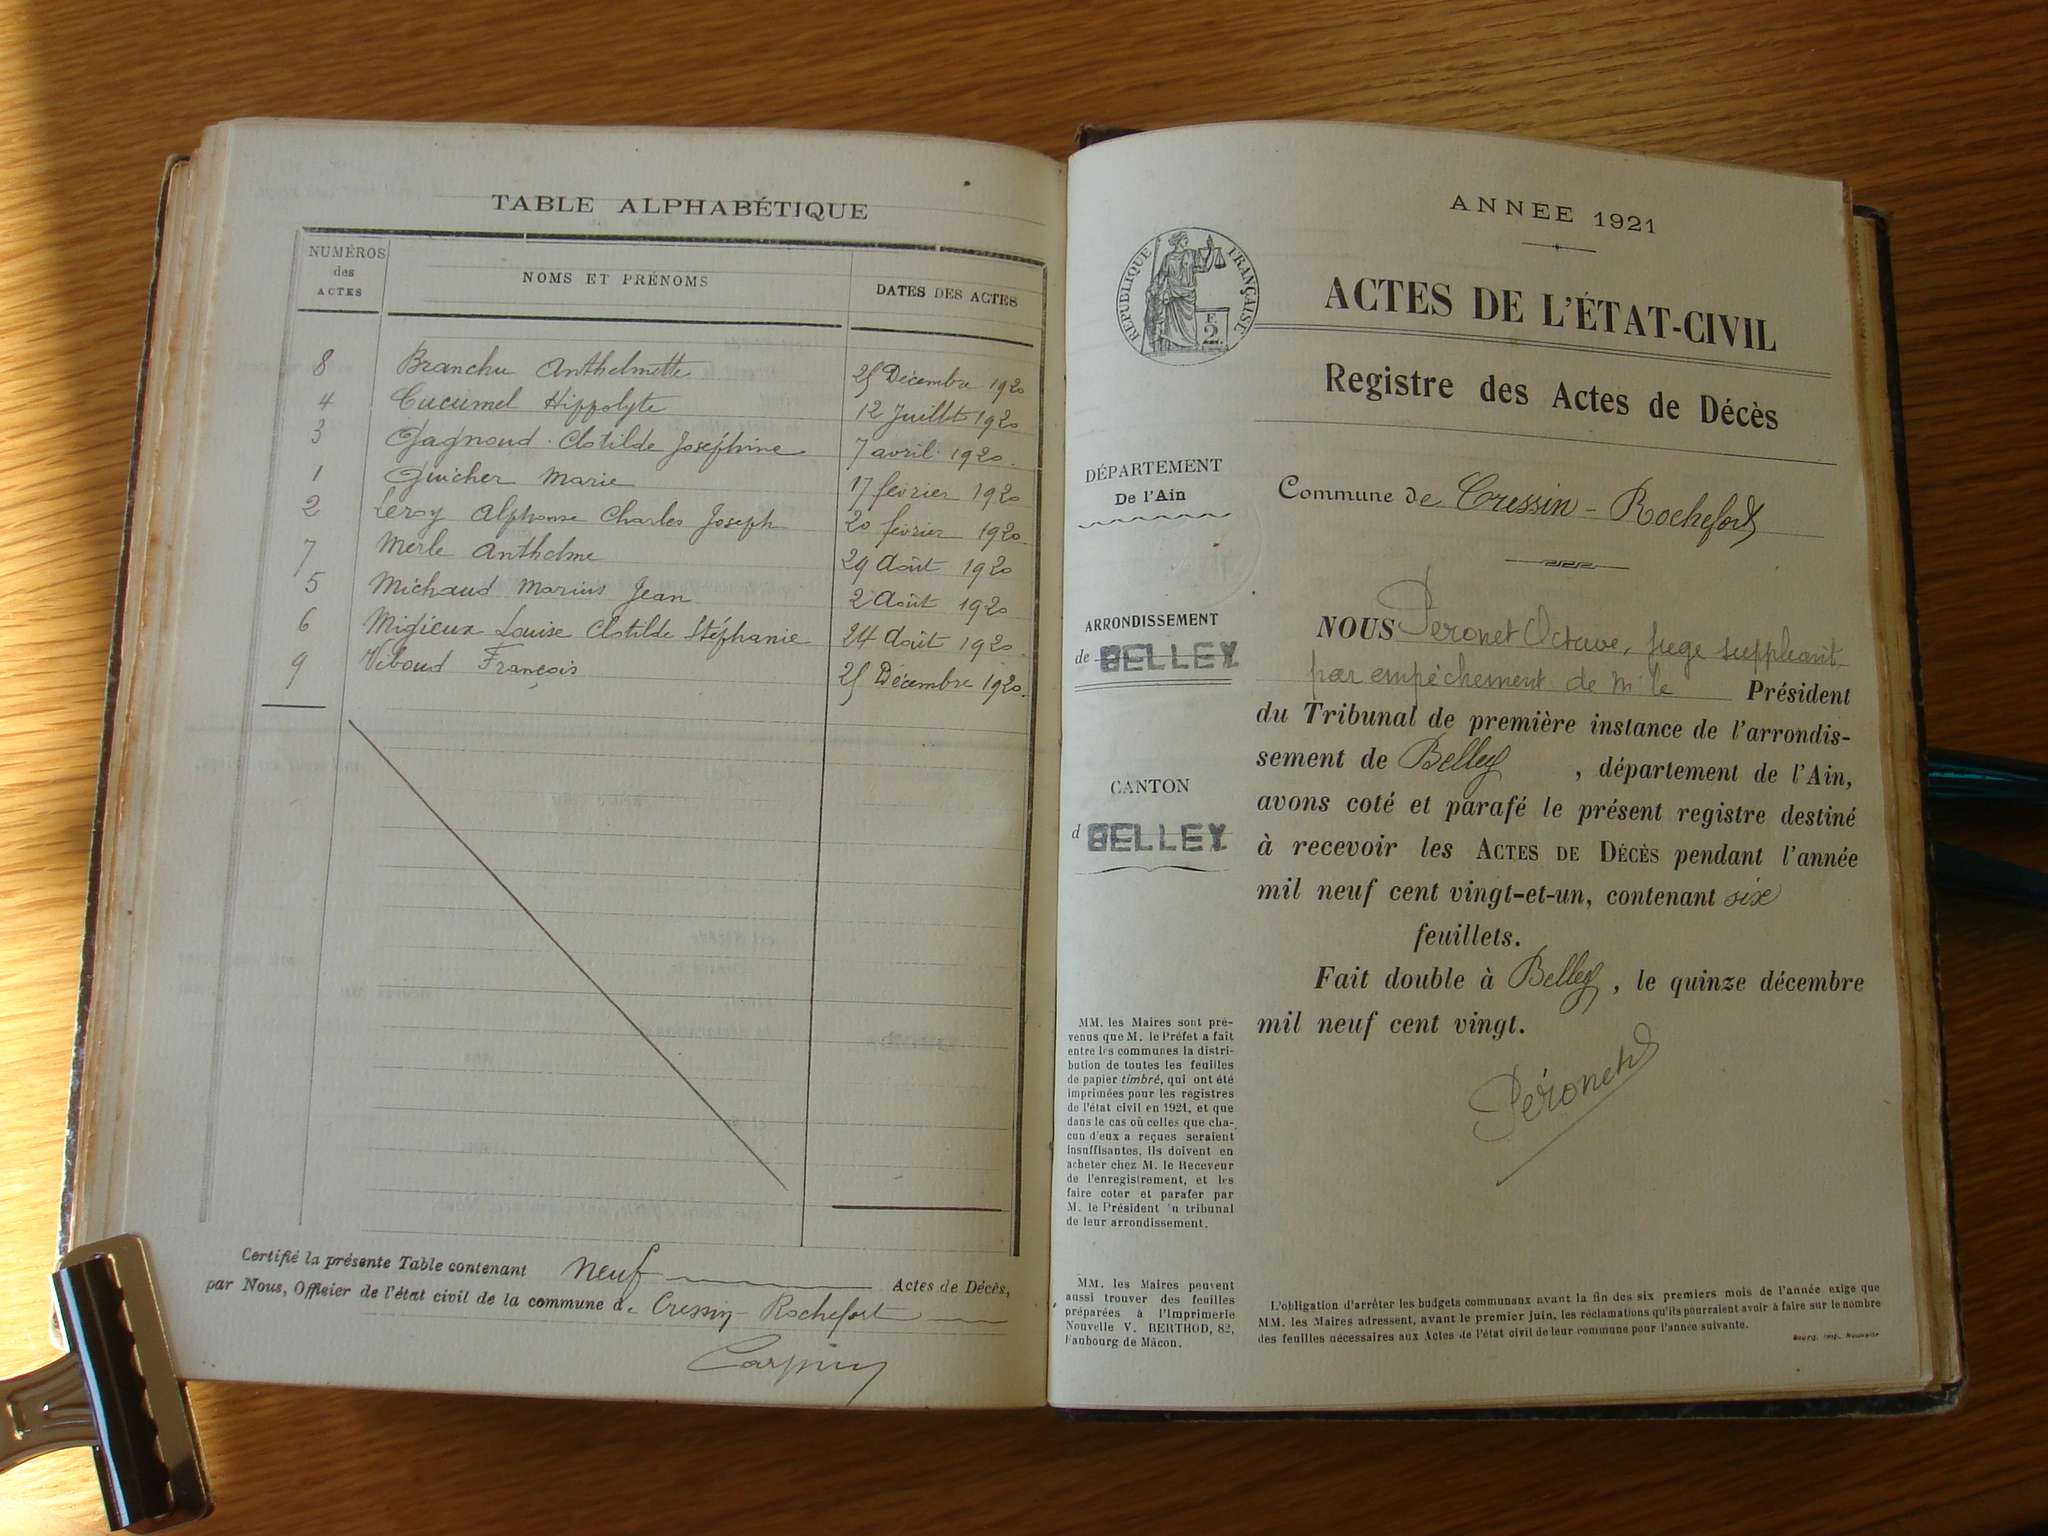 TABLE ALPHABÉTIQUE
NUMÉROS des ACTES NOMS ET PRÉNOMS DATES DES ACTES
8 Branchu Anthelmette 25 Décembre 1920
4 Cucumel Hippolyte 12 Juillet 1920
3 Gagnoud Clotilde Joséphine 7 avril 1920.
1 Guicher Marie 17 février 1920
2 Leroy Alphonse Charles Joseph 20 février 1920.
7 Merle Anthelme 29 Août 1920
5 Michaud Marius Jean 2 Août 1920
6 Migieux Louise Clotilde Stéphanie 24 Août 1920
9 Viboud François 25 Décembre 1920.
Certifié la présente Table contenant neuf Actes de Décès,
par Nous, Officier de l'état civil de la commune de Cressin-Rochefort
ANNEE 1921
RÉPUBLIQUE FRANÇAISE
F.
2
ACTES DE L'ÉTAT-CIVIL
Registre des Actes de Décès
DÉPARTEMENT
De l'Ain
Commune de Cressin-Rochefort
ARRONDISSEMENT
de BELLEY
CANTON
d BELLEY
NOUS Peronet Octave, juge suppléant
par empêchement de Mr le Président
du Tribunal de première instance de l'arrondis-
sement de Belley , département de l'Ain,
avons coté et parafé le présent registre destiné
à recevoir les ACTES DE DÉCÈS pendant l'année
mil neuf cent vingt-et-un, contenant six
feuillets.
Fait double à Belley , le quinze décembre
mil neuf cent vingt.
Péronet
MM. les Maires sont pré-
venus que M. le Préfet a fait
entre les communes la distri-
bution de toutes les feuilles
de papier timbré, qui ont été
imprimées pour les registres
de l'état civil en 1921, et que
dans le cas où celles que cha-
cun d'eux a reçues seraient
insuffisantes, ils doivent en
acheter chez M. le Receveur
de l'enregistrement, et les
faire coter et parafer par
M. le Président 'u tribunal
de leur arrondissement.
MM. les Maires peuvent
aussi trouver des feuilles
préparées à l'Imprimerie
Nouvelle V. BERTHOD, 82,
Faubourg de Mâcon.
L'obligation d'arrêter les budgets communaux avant la fin des six premiers mois de l'année exige que
MM. les Maires adressent, avant le premier juin, les réclamations qu'ils pourraient avoir à faire sur le nombre
des feuilles nécessaires aux Actes de l'état civil de leur commune pour l'année suivante.
Bourg, Imp. Nouvelle